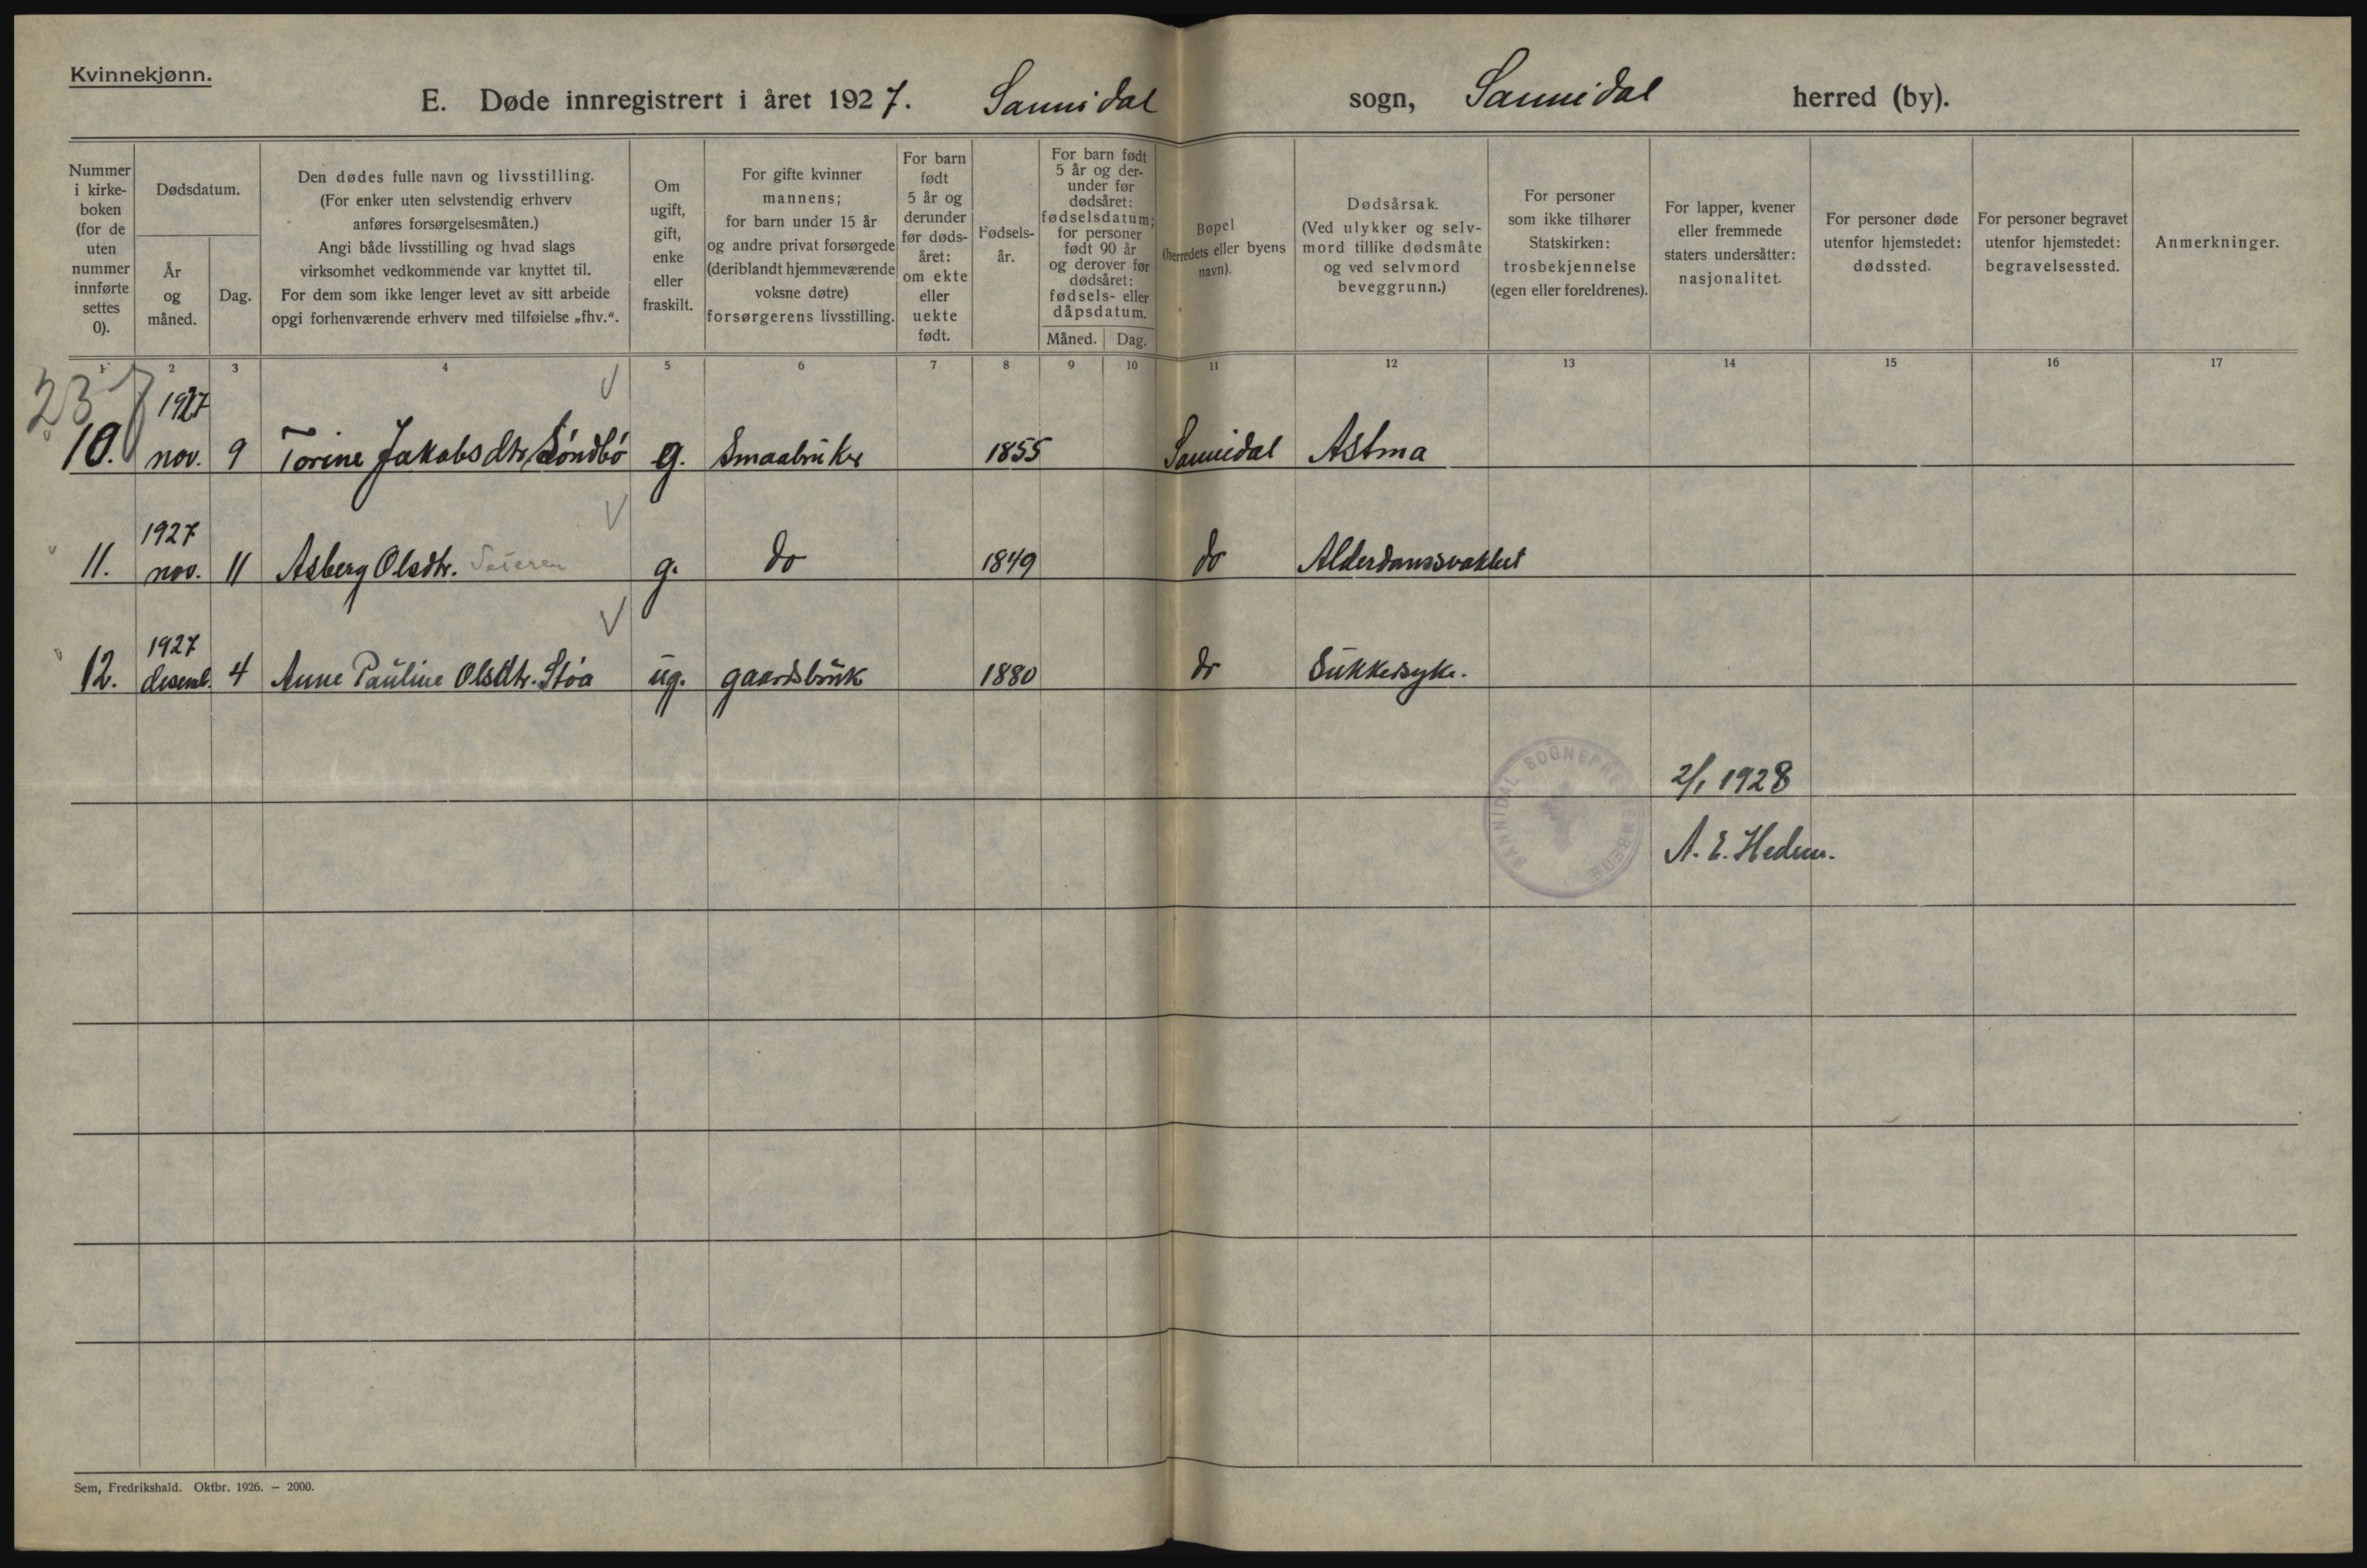 Kvinnekjønn.
E. Døde innregistrert i året 1927. Sannidal sogn, Sannidal herred (by).
Nummer i kirke- boken (for de uten nummer innførte settes 0).
Dødsdatum.
År og måned.
Dag.
Den dødes fulle navn og livsstilling.
(For enker uten selvstendig erhverv
anføres forsørgelsesmåten.)
Angi både livsstilling og hvad slags
virksomhet vedkommende var knyttet til.
For dem som ikke lenger levet av sitt arbeide
opgi forhenværende erhverv med tilføielse „fhv.“.
Om ugift, gift, enke eller fraskilt.
For gifte kvinner
mannens;
for barn under 15 år
og andre privat forsørgede
(deriblandt hjemmeværende
voksne døtre)
forsørgerens livsstilling.
For barn født 5 år og derunder før døds- året: om ekte eller uekte født.
Fødsels- år.
For barn født
5 år og der-
under før
dødsåret:
fødselsdatum;
for personer
født 90 år
og derover før
dødsåret:
fødsels- eller
dåpsdatum.
Måned. Dag.
Bopel
(herredets eller byens
navn).
Dødsårsak.
(Ved ulykker og selv-
mord tillike dødsmåte
og ved selvmord
beveggrunn.)
For personer
som ikke tilhører
Statskirken:
trosbekjennelse
(egen eller foreldrenes).
For lapper, kvener
eller fremmede
staters undersåtter:
nasjonalitet.
For personer døde
utenfor hjemstedet:
dødssted.
For personer begravet
utenfor hjemstedet:
begravelsessted.
Anmerkninger.
1 2 3 4 5 6 7 8 9 10 11 12 13 14 15 16 17
237
1927
10. nov. 9 Torine Jakobsdtr. Søndbö g. Smaabruker 1855 Sannidal Astma
1927
11. nov. 11 Asberg Olsdtr. g. do 1849 do Alderdomssvakhet
1927
12. desemb. 4 Anne Pauline Olsdtr. Støa ug. gaardsbruk 1880 do Sukkersyke.
SANNIDAL SOGNEPRESTEMBEDE
2/1 1928
A. E. Hedem.
Sem, Fredrikshald. Oktbr. 1926. — 2000.